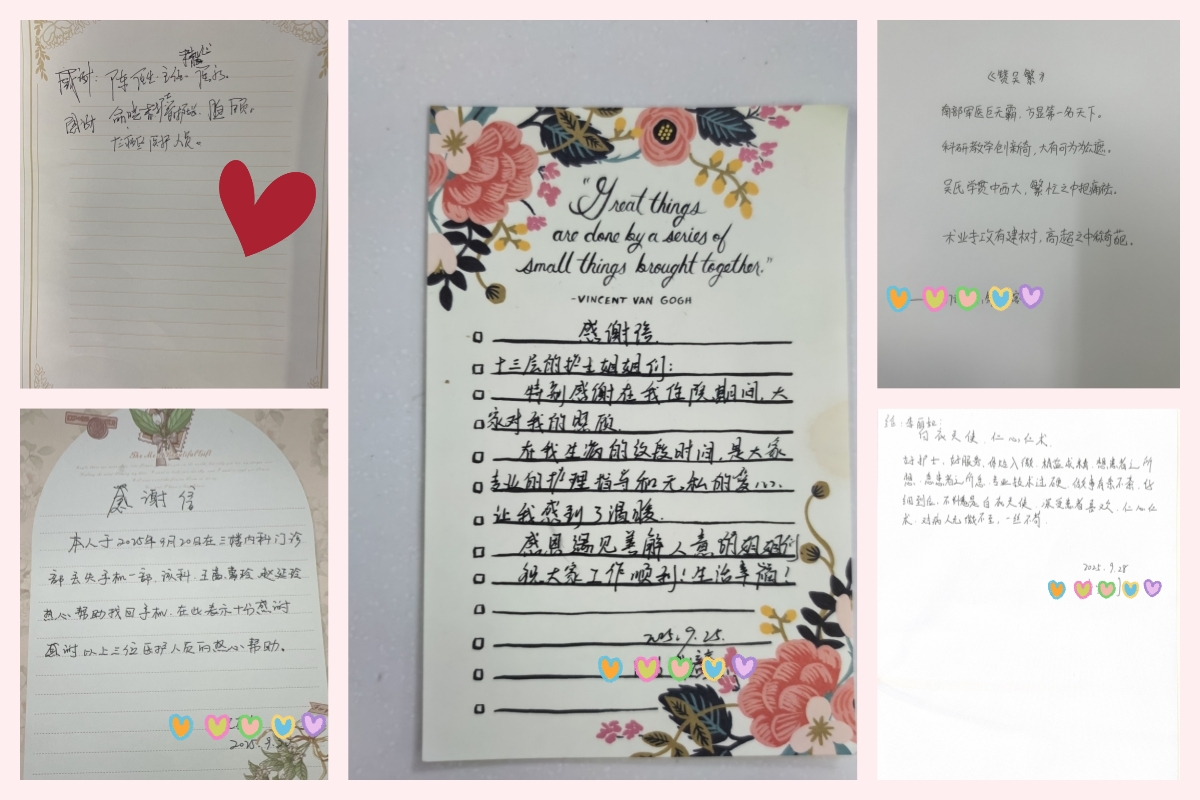 感谢:陈
感谢
医护人员。
"Great things
are done by a series of
small things brought together."
-VINCENT VAN GOGH
感谢信
十三层的护士姐姐们:
特别感谢在我住院期间,大
家对我的照顾.
在我生病的这段时间,是大家
专业的护理指导和无私的爱心.
让我感到了温暖.
感恩遇见善解人意的姐姐们
祝大家工作顺利!生活幸福!
2025.9.25.
《赞吴繁》
南部军医巨无霸,方显第一名天下。
科研教学创新高,大有可为
吴氏学贯中西大,繁忙之中把病祛。
术业 有建树,高超之中称奇葩。
感谢信
本人于2025年9月20日在三楼内科门诊
部丢失手机一部,该科.王 赵延玲
热心帮助找回手机.在此表示十分感谢
感谢以上三位医护人员的热心帮助。
2025.9.2
给:李丽
白衣天使.仁心仁术.
好护士,好服务,体贴入微.精益求精.想患者之所
想.急患者之所急.专业技术过硬.做事有条不紊.仔
细到位.不愧是白衣天使.深受患者喜欢.仁心仁
术.对病人无微不至,一丝不苟.
2025.9.28